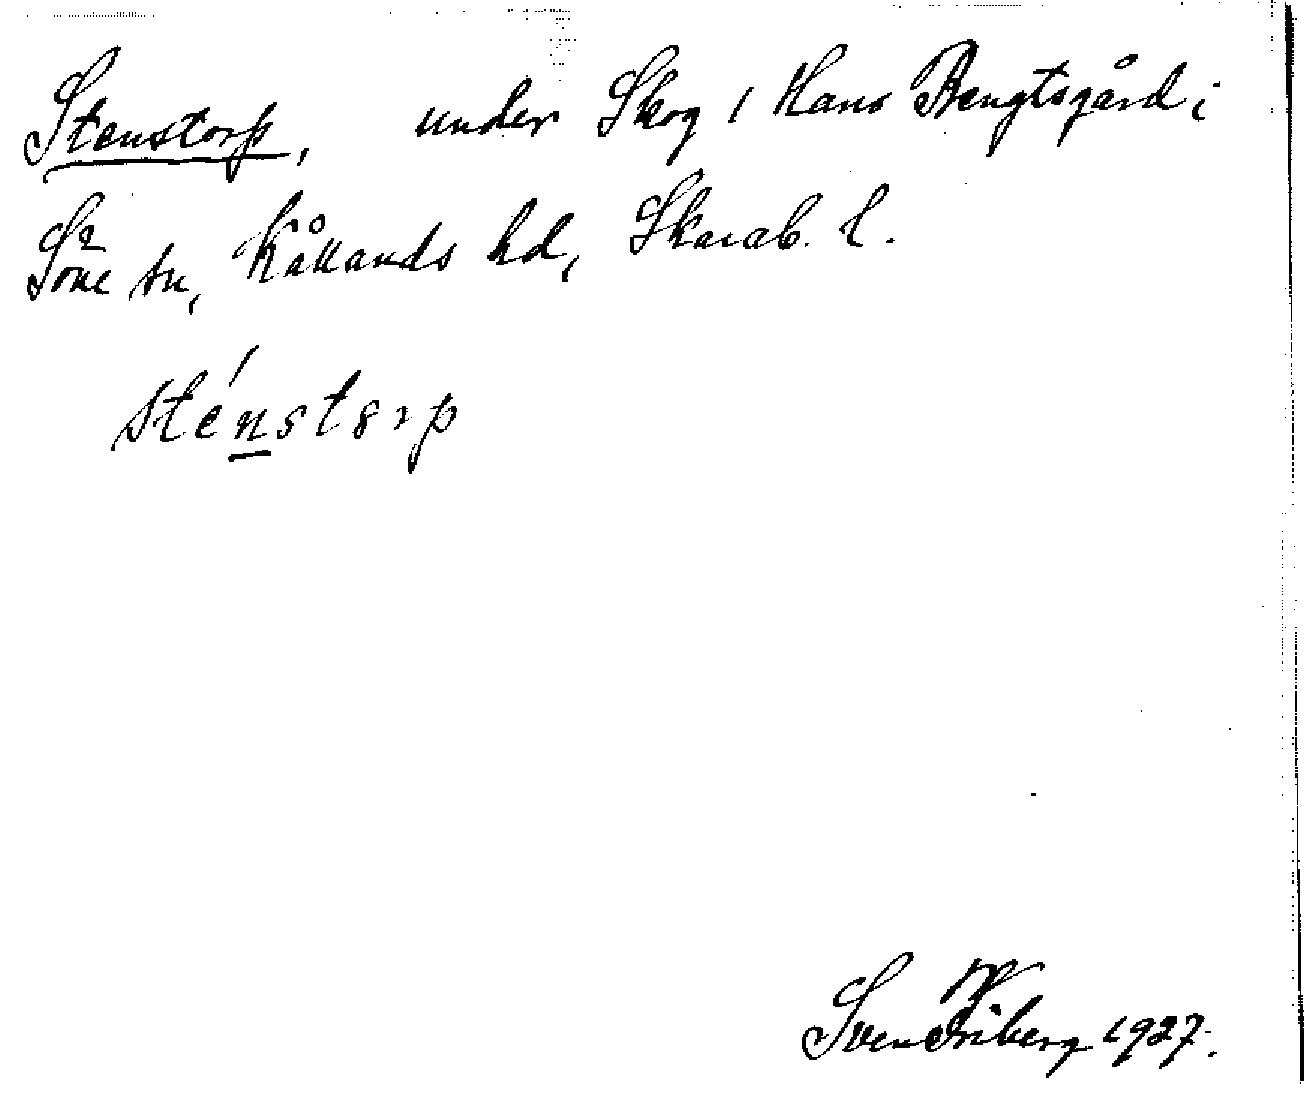 Stenstorp, under Skog, Hans Bengtsgård i
Söne sn, Kållands hd, Skarab. l.
sténstorp
Sven Friberg 1927.